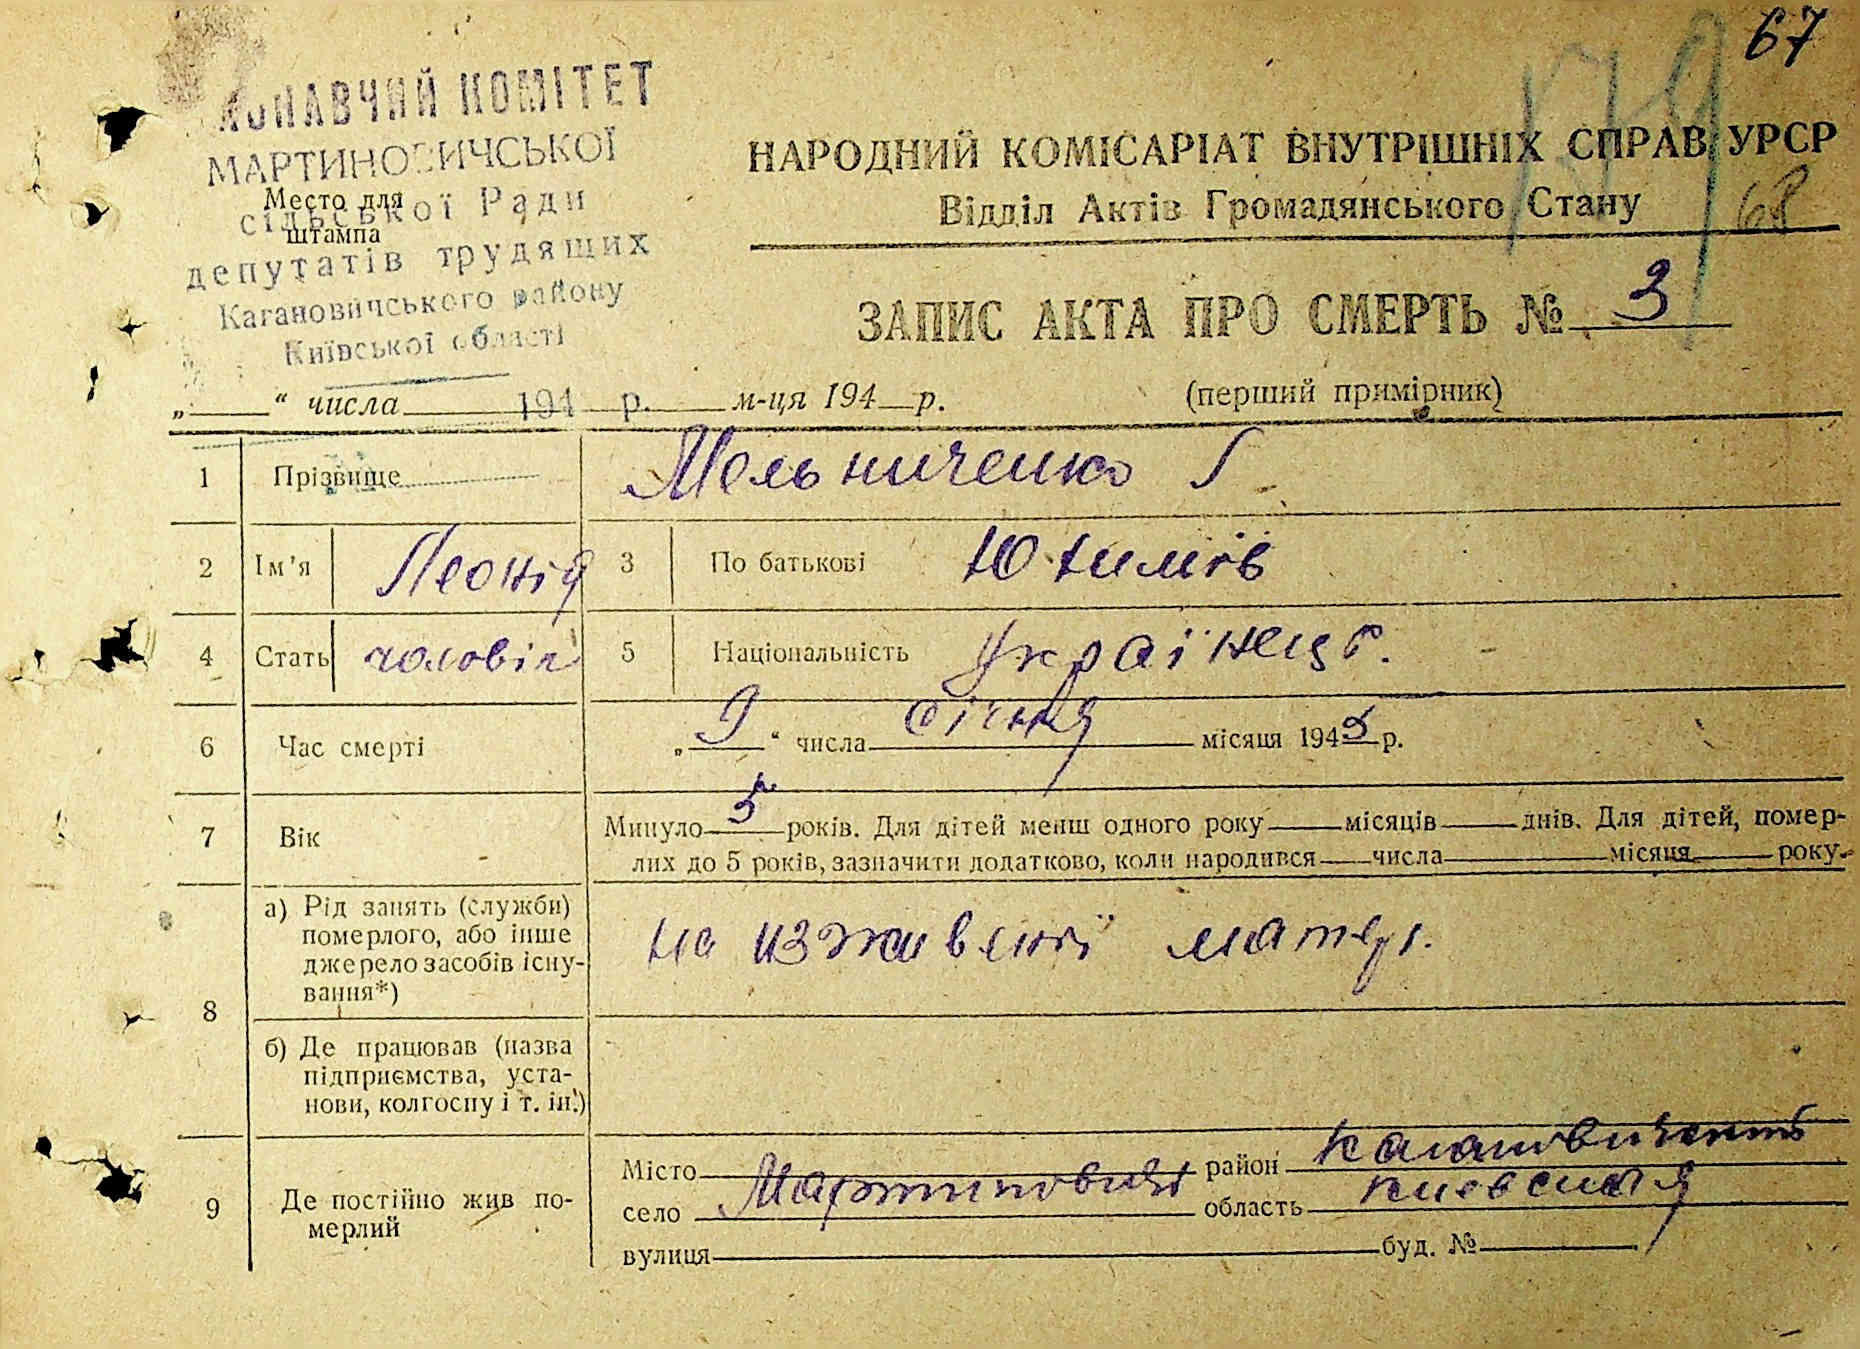 67
179
ВИКОНАВЧИЙ КОМІТЕТ
МАРТИНОВИЧСЬКОЇ
сільської Ради
депутатів трудящих
Кагановичського району
Київської області
194 р.
Место для
штампа
НАРОДНИЙ КОМІСАРІАТ ВНУТРІШНІХ СПРАВ УРСР
Відділ Актів Громадянського Стану
68
ЗАПИС АКТА ПРО СМЕРТЬ № 3
„ “ числа м-ця 194 р.
(перший примірник)
1 Прізвище Мельниченко
2 Ім'я Леонід 3 По батькові Юхимів
4 Стать чоловік 5 Національність Українець.
6 Час смерті „ “ числа січня місяця 1945 р.
7 Вік Минуло 5 років. Для дітей менш одного року місяців днів. Для дітей, помер-
лих до 5 років, зазначити додатково, коли народився числа місяця року
8 а) Рід занять (служби)
померлого, або інше
джерело засобів існу-
вання*)
на матері.
б) Де працював (назва
підприємства, уста-
нови, колгоспу і т. ін.)
9 Де постійно жив по-
мерлий
Місто район
село Мартиновичі область Киевская
вулиця буд. №